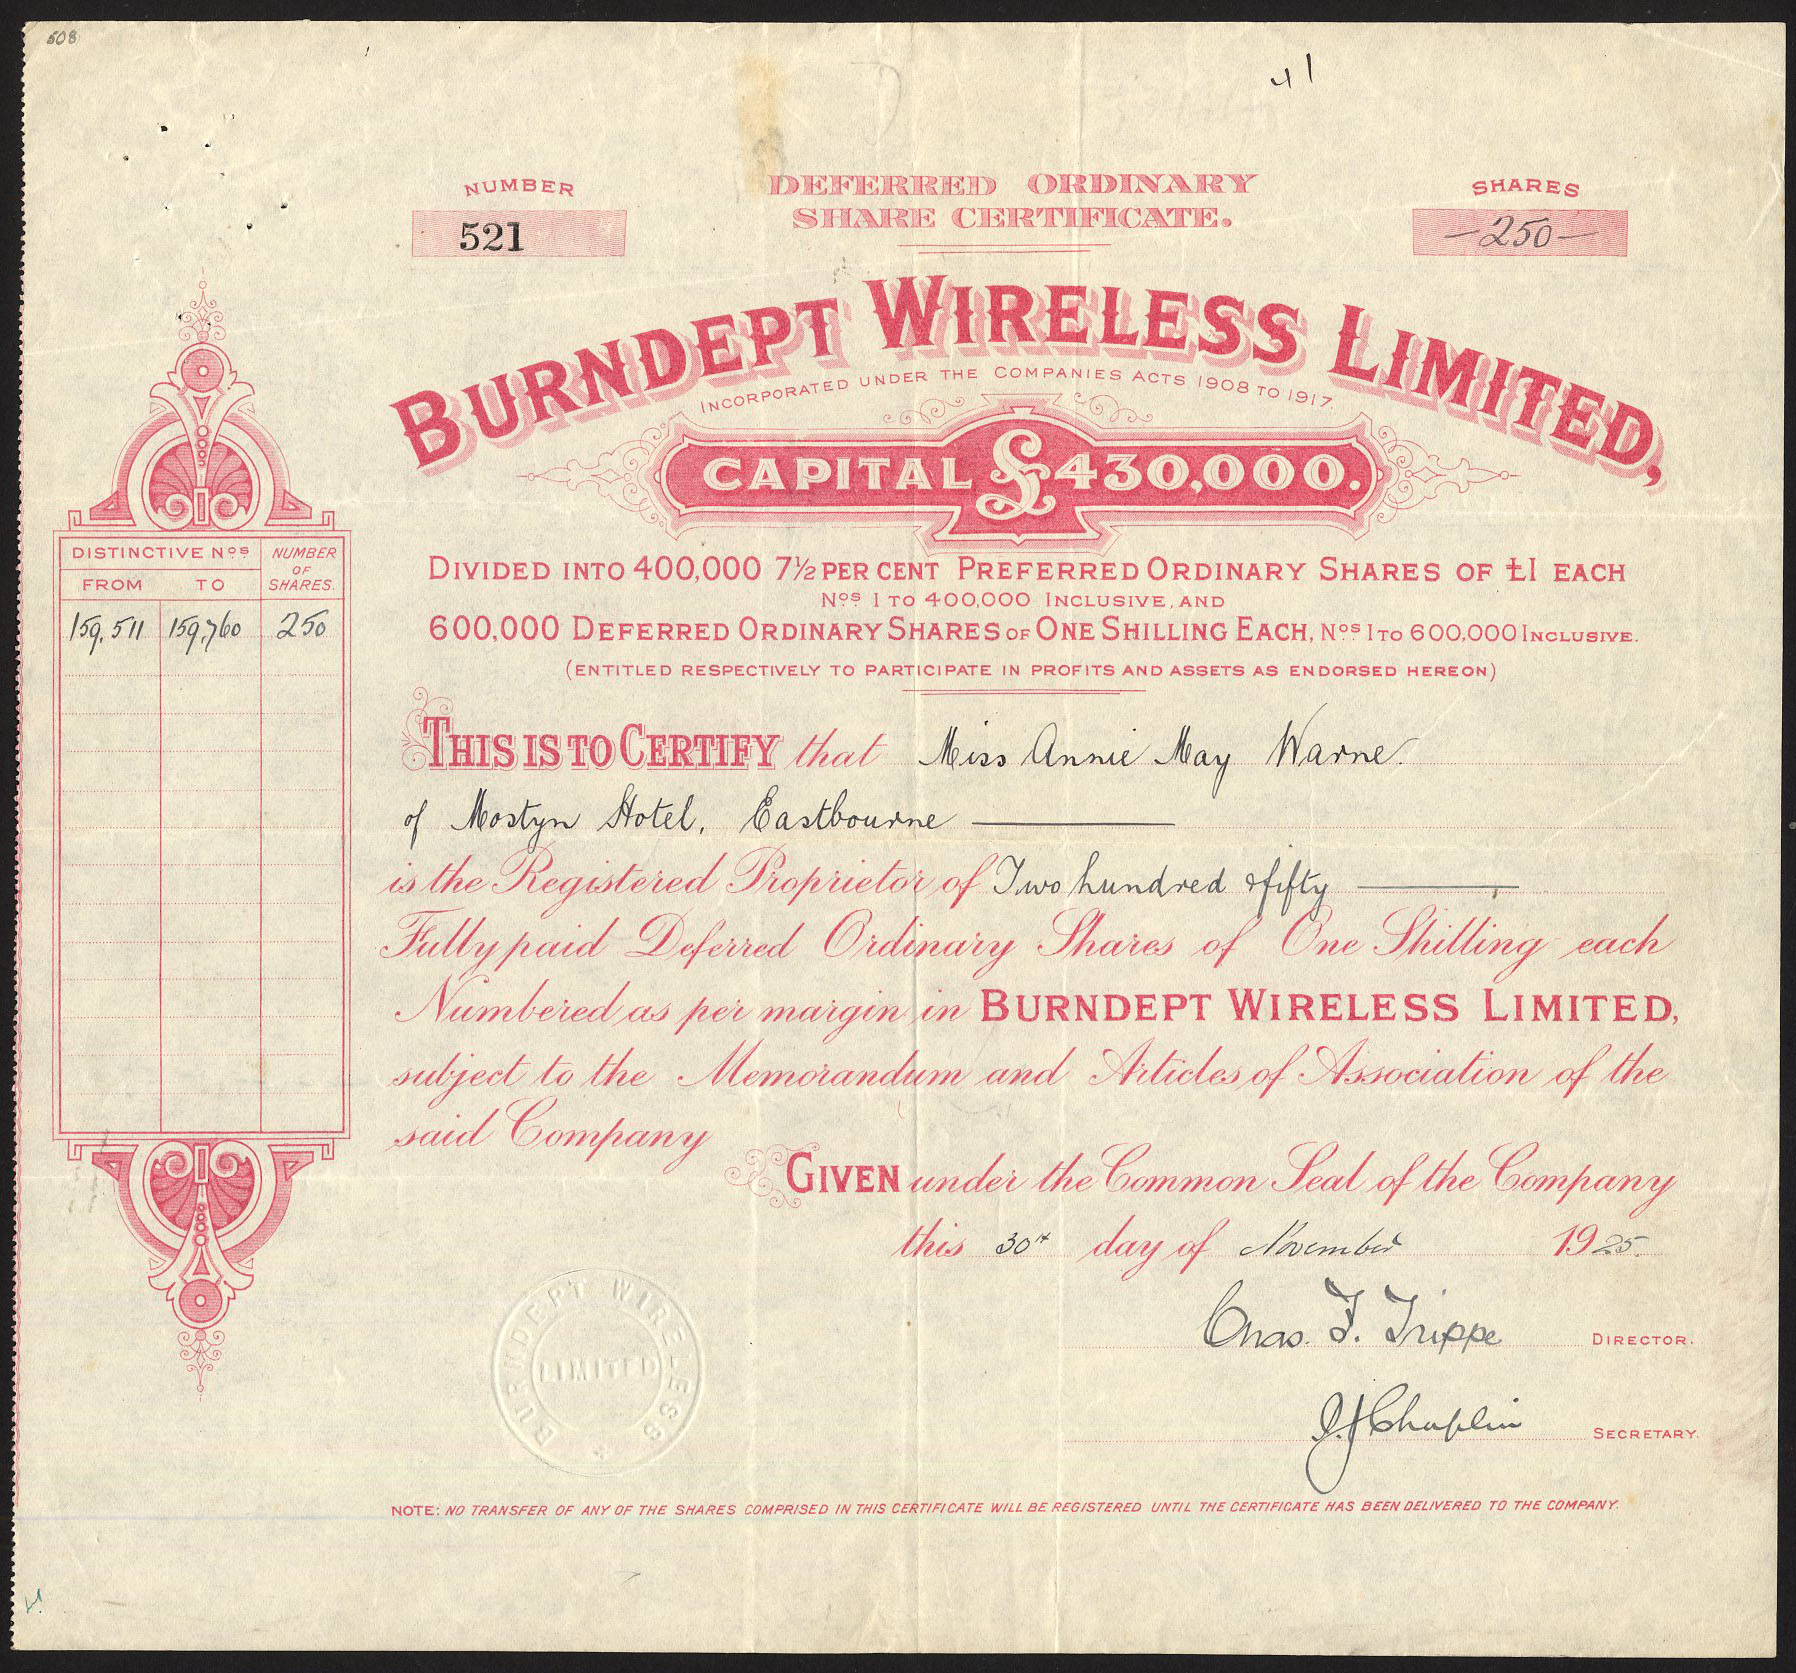 508
41
NUMBER
521
DEFERRED ORDINARY
SHARE CERTIFICATE.
SHARES
—250—
BURNDEPT WIRELESS LIMITED,
INCORPORATED UNDER THE COMPANIES ACTS 1908 TO 1917.
CAPITAL £430,000.
DIVIDED INTO 400,000 7½ PER CENT PREFERRED ORDINARY SHARES OF £1 EACH
Nos. 1 TO 400,000 INCLUSIVE, AND
600,000 DEFERRED ORDINARY SHARES OF ONE SHILLING EACH, Nos. 1 TO 600,000 INCLUSIVE.
(ENTITLED RESPECTIVELY TO PARTICIPATE IN PROFITS AND ASSETS AS ENDORSED HEREON)
DISTINCTIVE Nos. NUMBER OF SHARES.
FROM TO
159,511 159,760 250
THIS IS TO CERTIFY that Miss Annie May Warne.
of Mostyn Hotel, Eastbourne
is the Registered Proprietor of Two hundred & fifty
Fully paid Deferred Ordinary Shares of One Shilling each
Numbered as per margin in BURNDEPT WIRELESS LIMITED,
subject to the Memorandum and Articles of Association of the
said Company
GIVEN under the Common Seal of the Company
this 30th day of November 1925.
Chas. F. Trippe DIRECTOR.
J. J. Chaplin SECRETARY.
BURNDEPT WIRELESS
LIMITED
NOTE: NO TRANSFER OF ANY OF THE SHARES COMPRISED IN THIS CERTIFICATE WILL BE REGISTERED UNTIL THE CERTIFICATE HAS BEEN DELIVERED TO THE COMPANY.